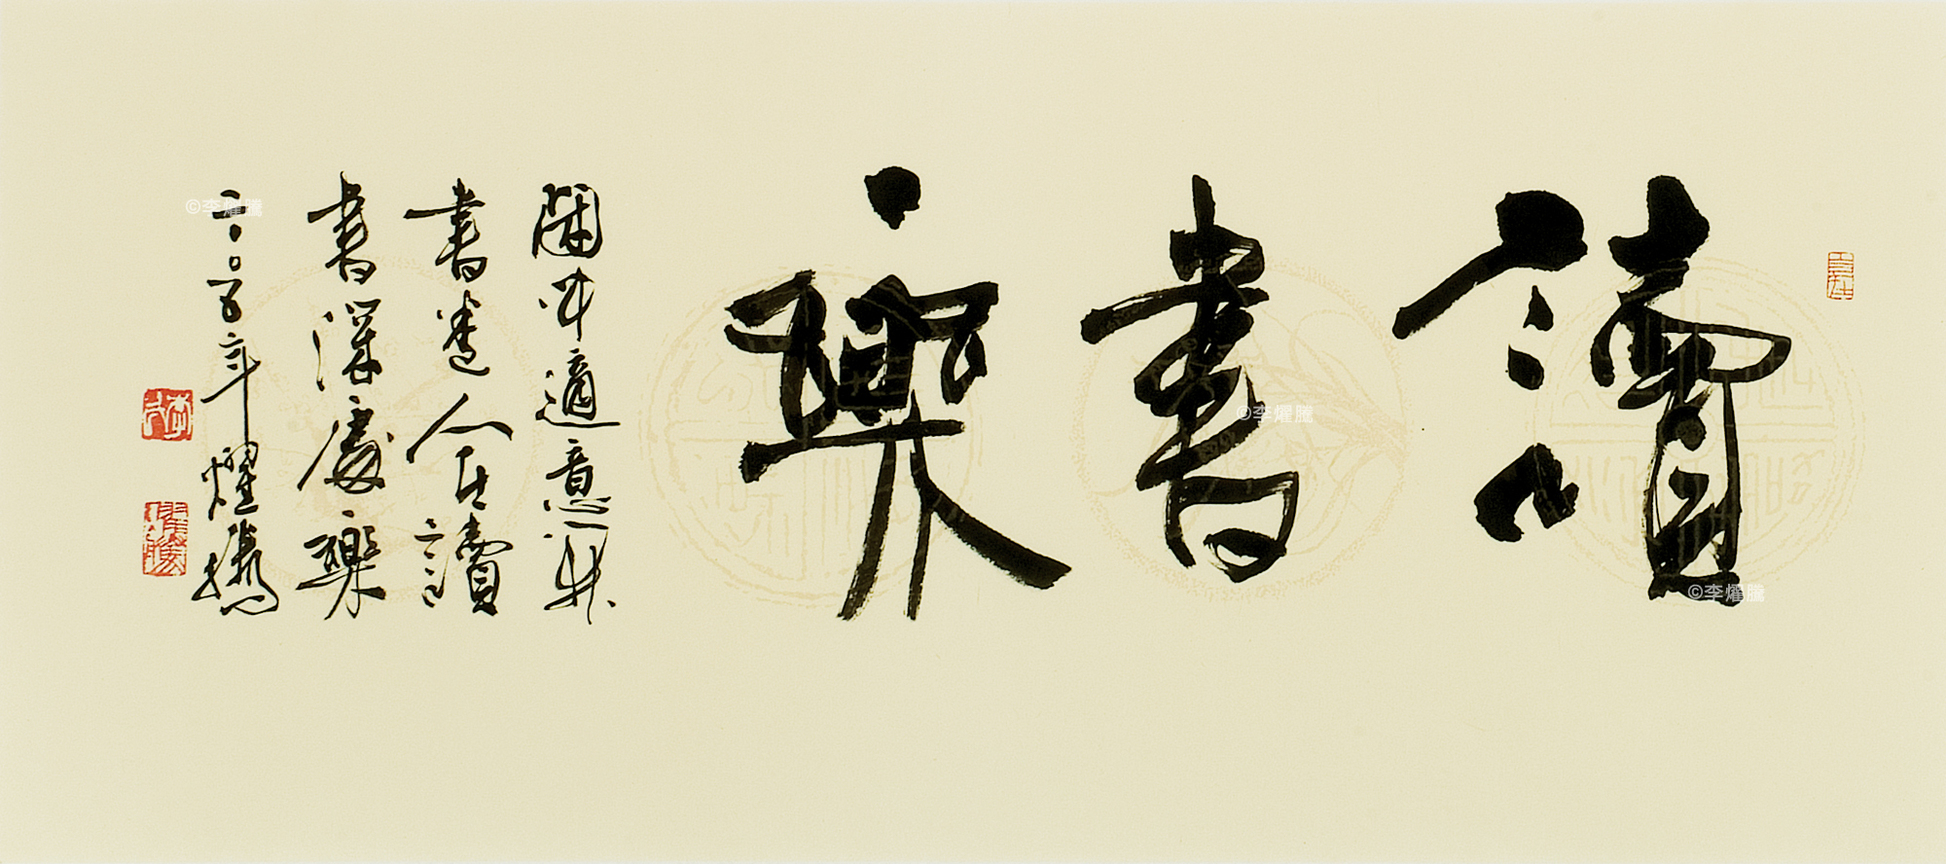 讀書樂
閒中適意
書卷人在讀
書深處樂
二〇〇五年 燿騰
©李燿騰
©李燿騰
©李燿騰